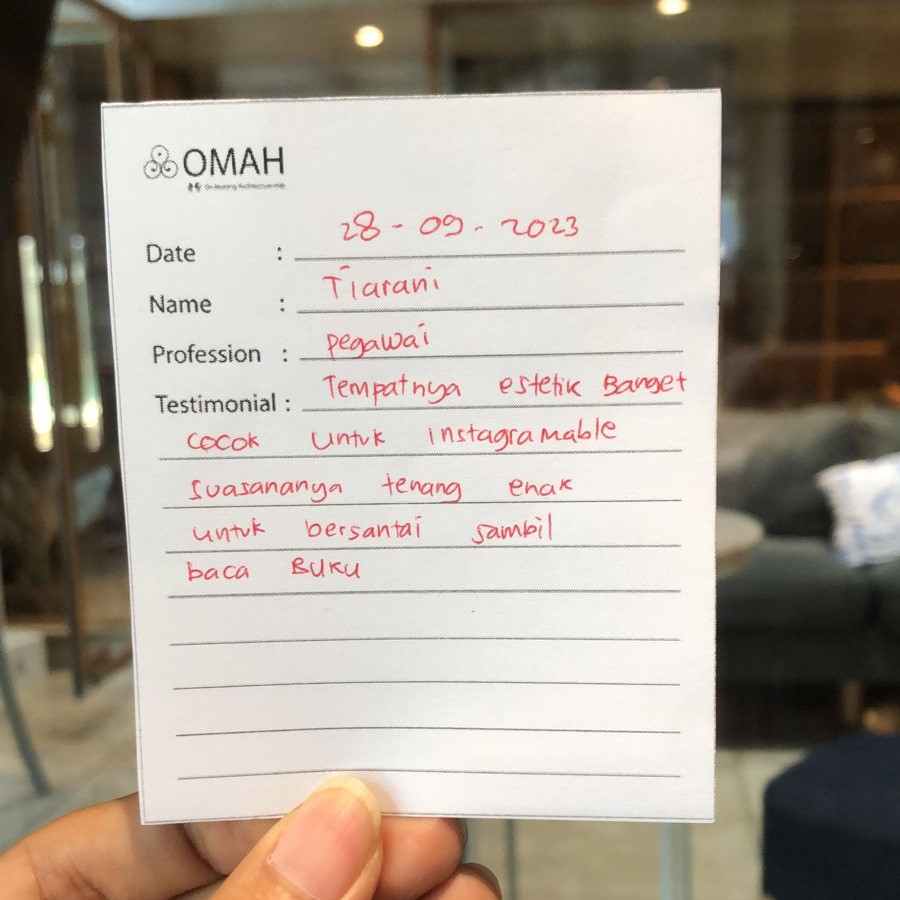 OMAH
Date : 28 - 09 - 2023
Name : Tiarani
Profession : pegawai
Testimonial : Tempatnya estetik Banget
cocok untuk instagramable
suasananya tenang enak
untuk bersantai sambil
baca Buku